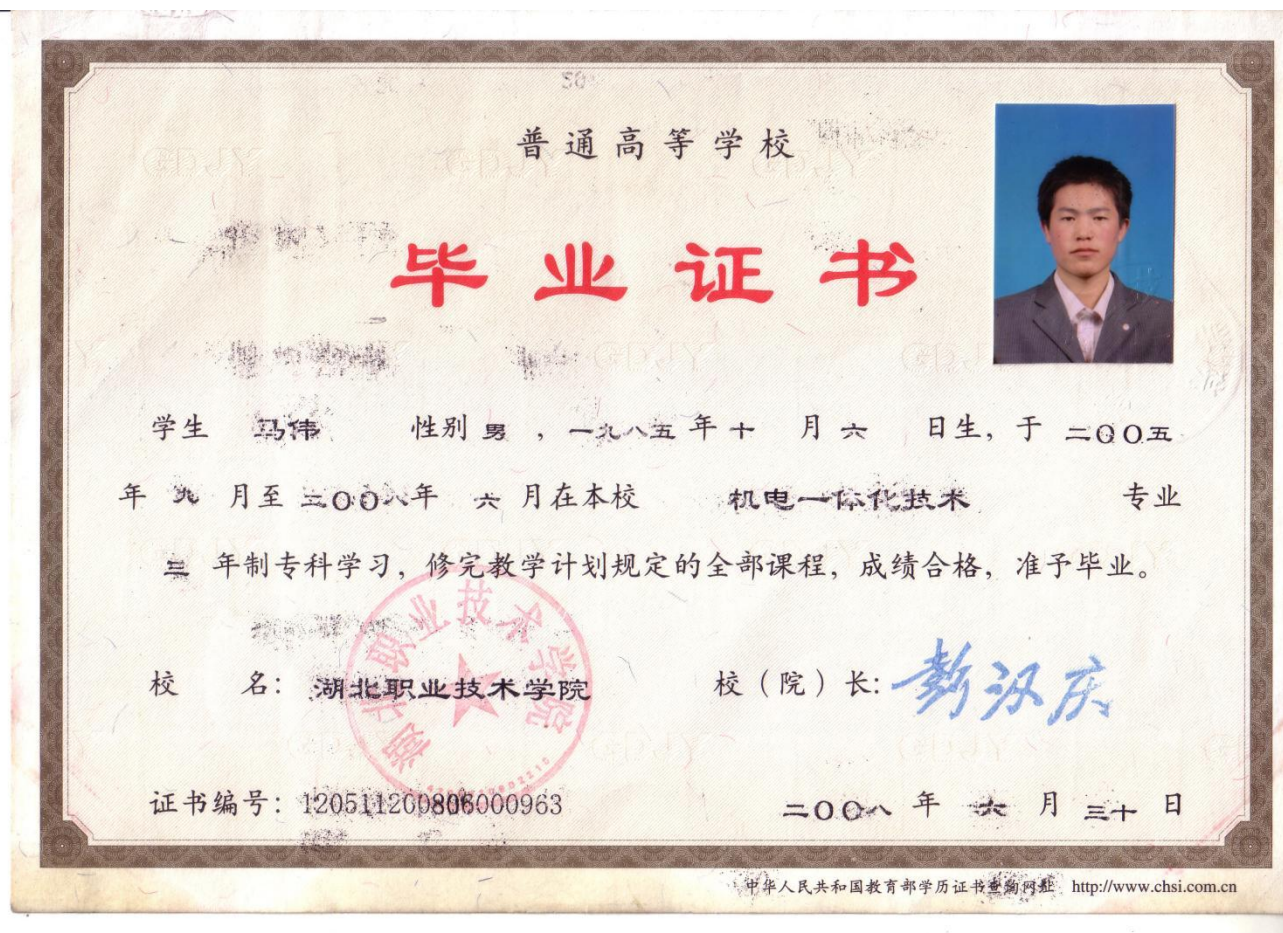 普通高等学校
毕业证书
学生 马伟 性别 男 ，一九八五年十 月 六 日生，于 二〇〇五
年 九 月至 二〇〇八年 六 月在本校 机电一体化技术 专业
三 年制专科学习，修完教学计划规定的全部课程，成绩合格，准予毕业。
湖北职业技术学院
校 名：湖北职业技术学院 校（院）长：彭汉庆
证书编号：120511200806000963 二〇〇八 年 六 月 三十 日
中华人民共和国教育部学历证书查询网址 http://www.chsi.com.cn